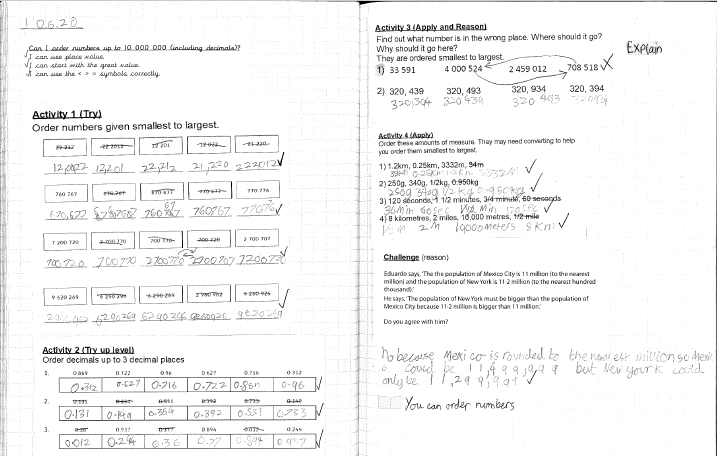 1 0.6.20
Can I order numbers up to 10 000 000 (including decimals)?
I can use place value
I can start with the great value
I can use the < > = symbols correctly.
Activity 1 (Try)
Order numbers given smallest to largest.
22 212 22 2012 12 201 12 022 21 220
12,022 12,201 22,212 21,220 222012
760 767 770 776
670,677 760767 770776
7 200 720 2 700 770 700 770 700 720 2 700 707
700720 700770 2700770 2700707 7200720
9 620 269 6 290 296 6 290 269 2 960 962 9 260 926
Activity 2 (Try up level)
Order decimals up to 3 decimal places
1. 0.869 0.722 0.96 0.627 0.716 0.312
0.312 0.627 0.716 0.722 0.869 0.96
2.
0.131 0.149 0.392 0.531 0.733
3. 0.937 0.377 0.894 0.012 0.294
0.012 0.294 0.36 0.894
Activity 3 (Apply and Reason)
Find out what number is in the wrong place. Where should it go?
Why should it go here?
They are ordered smallest to largest.
Explain
1) 33 591 4 000 524 2 459 012 708 518
2) 320, 439 320, 493 320, 934 320, 394
320,394 320,439 320 493 320934
Activity 4 (Apply)
Order these amounts of measure. They may need converting to help
you order them smallest to largest.
1) 1.2km, 0.25km, 3332m, 34m
34m 0.25km 1.2km 3332m
2) 250g, 340g, 1/2kg, 0.950kg
250g 340g 1/2kg 0.950kg
3) 120 seconds, 1 1/2 minutes, 3/4 minute, 60 seconds
60sec 120sec
4) 8 kilometres, 2 miles, 10,000 metres, 1/2 mile
½ m 2m 10000meters 8km
Challenge (reason)
Eduardo says, 'The the population of Mexico City is 11 million (to the nearest
million) and the population of New York is 11·2 million (to the nearest hundred
thousand).'
He says, 'The population of New York must be bigger than the population of
Mexico City because 11·2 million is bigger than 11 million.'
Do you agree with him?
No because Mexico is rounded to the nearest million so
could be 11,499,999 but New York could
only be 11,299,999
You can order numbers